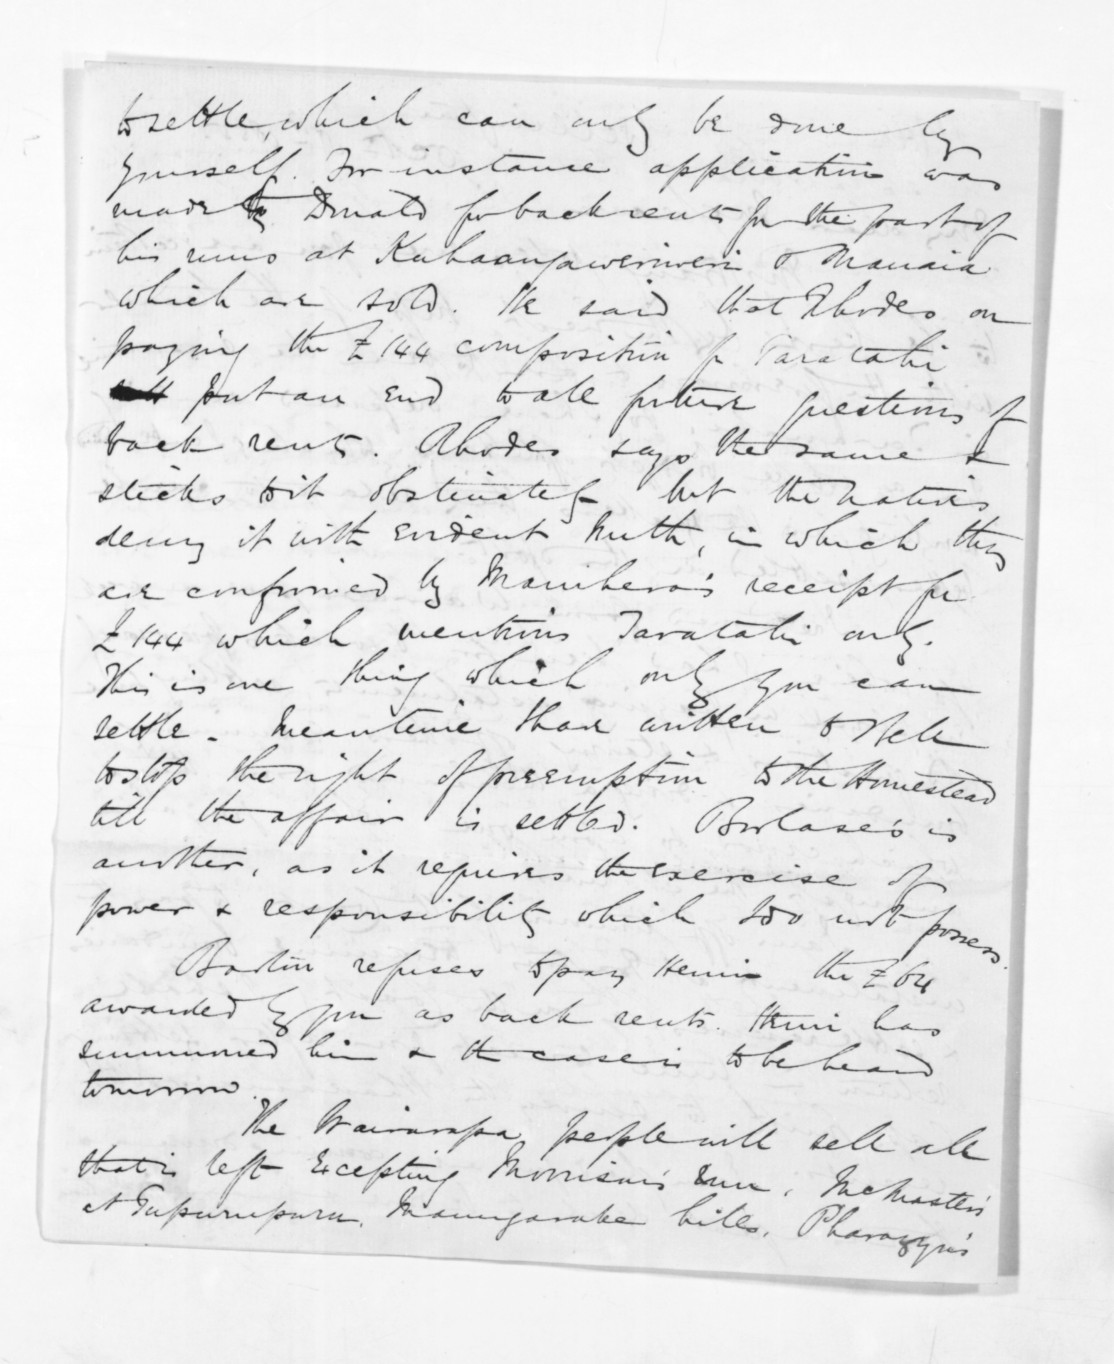 to settle, which can only be done by
yourself. For instance application was
made to Donald for back rents for the part of
his runs at Kuhaangaweriweri & Manaia
which are sold. He said that Rhodes on
paying the £144 composition for Taratahi
put an end to all future questions of
back rents. Rhodes says the same &
sticks to it obstinately but the natives
deny it with evident truth, in which they
are confirmed by Manihera's receipt for
£144 which mentions Taratahi only.
This is one thing which only you can
settle. Meantime I have written to
to stop the right of preemption to the Homestead
till the affair is settled. Borlase's is
another, as it requires the exercise of
power & responsibility which I do not possess.
Barton refuses to pay Hemi the £64
awarded by you as back rents. Hemi has
summoned him & the case is to be heard
tomorrow.
The Wairarapa people will sell all
that is left excepting Morrison's run, McMaster's
at Tupurupuru, Maungarake hills, Pharazyn's